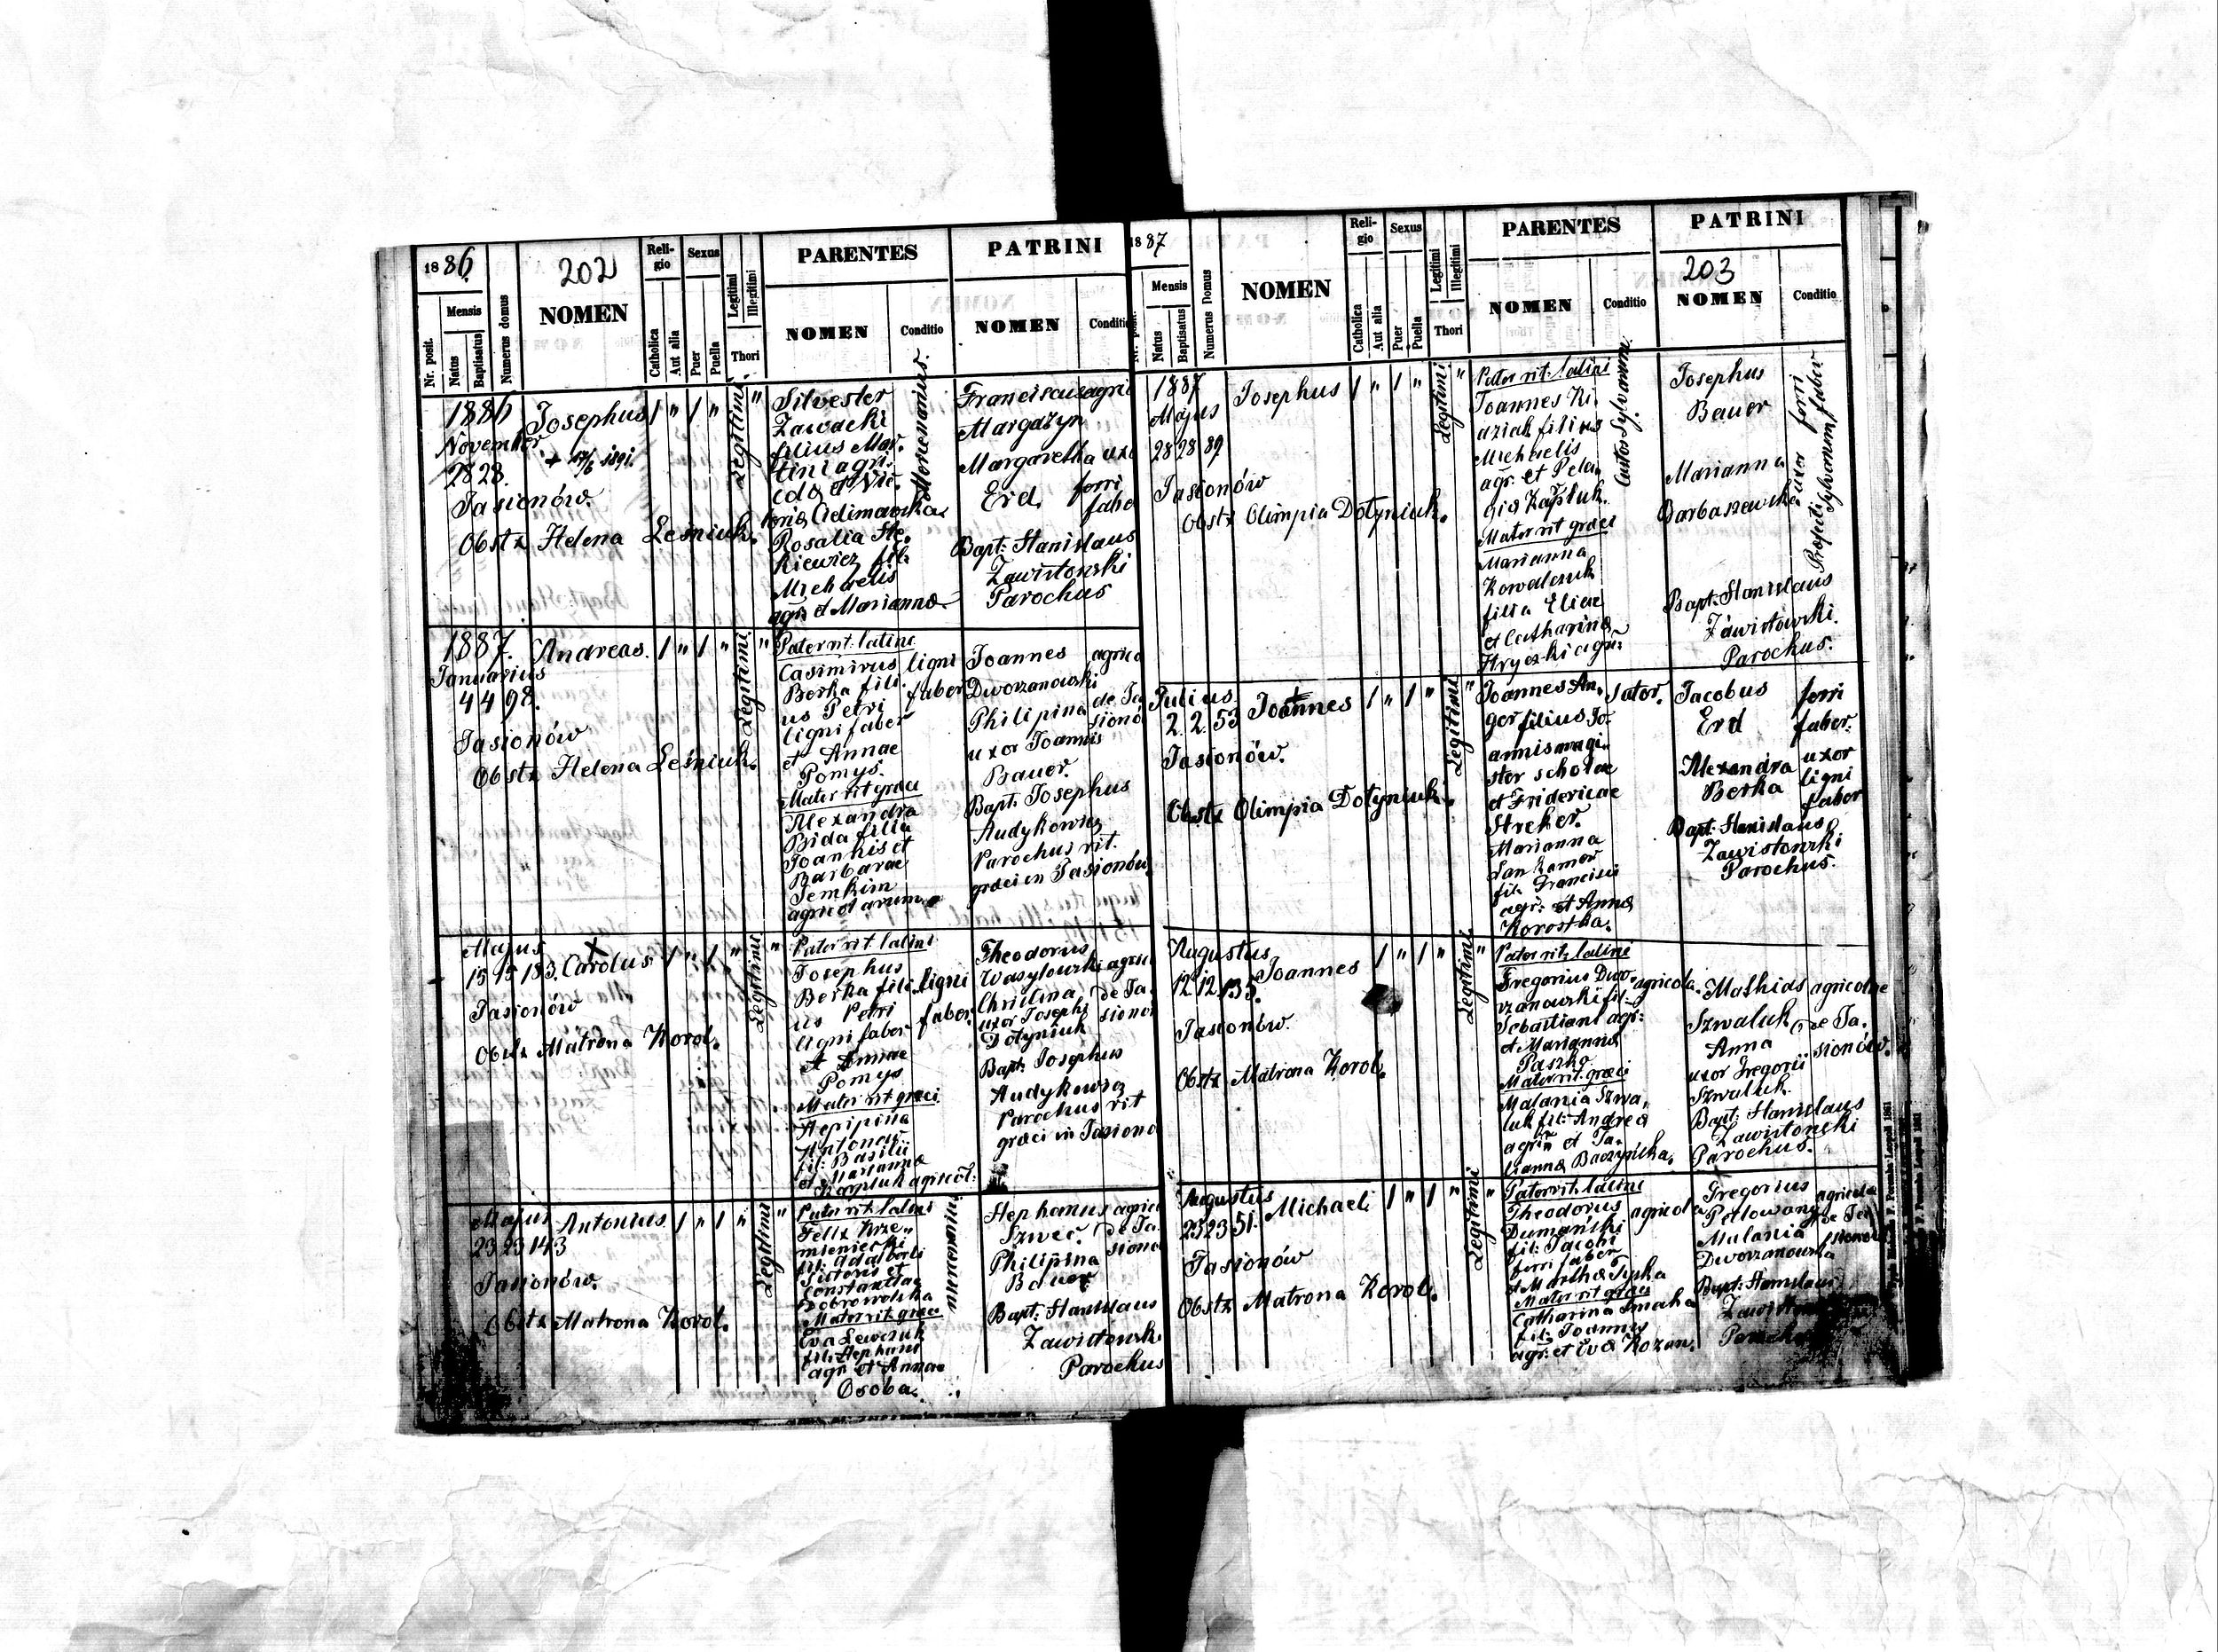 1886.
202
Nr. posit.
Mensis
Natus
Baptisatus
Numerus domus
NOMEN
Reli-
gio
Catholica
Aut alia
Sexus
Puer
Puella
Legitimi
Illegitimi
Thori
PARENTES
NOMEN
Conditio
PATRINI
NOMEN
Conditio
1886
November
28 28.
Jasionów.
Josephus
+ 17/6 1891.
1 " 1 "
Legitimi.
"
Obstx Helena Leśniuk.
Silvester
Zawacki
filius Mar.
tini agri.
colo et Vic.
toria Adimowska
Rosalia Ste.
kiewicz fil:
Michaelis
agr. et Marianna
Mercenarius.
Franciscus agric
Margazyn
Margaretha uxo
Erd ferri
fabe
Bapt: Stanislaus
Zawistowski
Parochus
1887.
Januarius
4 4 98.
Jasionów
Andreas. 1 " 1 "
Legitimi.
"
Obstx Helena Leśniuk.
Pater rit. latini
Casimirus
Berka fili.
us Petri
ligni faber
et Annae
Pomys.
Mater rit graeci
Alexandra
Bida filia
Joannis et
Barbarae
Temkim
agricolarum
ligni
faber
Joannes agrico
Dworzanowski
Philipina de Ja
sionó
uxor Joannis
Bauer.
Bapt: Josephus
Audykowicz
Parochus rit.
graeci in Jasionów
Majus
15 15 183.
Jasionów
Carolus. 1 " 1 "
Legitimi
"
Obstx Matrona Korol.
Pater rit. latini
Josephus
Berka fili.
us Petri
ligni faber
et Annae
Pomys
Mater rit graeci
Antoneu
fil: Basilii
et Marianna
Karpluk agricol:
ligni
faber.
Theodorus
Wasylowski agric
Christina de Ja.
uxor Josephi sionó
Dotyniuk
Bapt: Josephus
Audykowicz
Parochus rit
graeci in Jasiono
Majus
23 23 143
Jasionów.
Antonius. 1 " 1 "
Legitimi
"
Obstx Matrona Korol.
Pater rit. latini
Felix Krze.
mieniecki
fil: Adalberti
Sutoris et
Constantiae
Dobrowolska
Mater rit. graeci
Eva Lewczuk
fil: Stephani
agr: et Annae
Osoba.
Stephanus agrico
Szwec. de Ja.
Philipina siono
Bauer
Bapt: Stanislaus
Zawistowsk
Parochus
1887
Mensis
Natus
Baptisatus
Numerus Domus
NOMEN
Reli-
gio
Catholica
Aut alia
Sexus
Puer
Puella
Legitimi
Illegitimi
Thori
PARENTES
NOMEN
Conditio
PATRINI
203
NOMEN
Conditio
1887
Majus
28 28 89
Jasionów
Josephus 1 " 1 "
Legitimi
"
Obstx Olimpia Dotyniuk.
Pater rit. latini
Joannes Ki.
dziak filius
Michaelis
agr. et Pela.
gia Kapluk.
Mater rit graeci
Marianna
Kowalczuk
filia Eliae
et Catharina
Hryczki agr:
Custos Sylvarum.
Josephus
Bauer
Marianna
Barbaszewska
uxor ferri
Propoiti Sylvarum, faber
Bapt: Stanislaus
Zawistowski.
Parochus.
Julius.
2. 2. 53
Jasionów.
Joannes 1 " 1 "
Legitimi
"
Obstx Olimpia Dotyniuk.
Joannes An.
ger filius Jo.
annis magi.
ster scholae
et Fridericae
Streker.
Marianna
San Kamor
fil: Francisci
agr: et Anna
Korostka.
Sator.
Jacobus ferri
Erd faber.
Alexandra uxor
Berka ligni
faber
Bapt: Stanislaus
Zawistowski
Parochus.
Augustus
12 12 135.
Jasionów.
Joannes 1 " 1 "
Legitimi.
"
Obstx Matrona Korol.
Pater rit. latini
Gregorius Dwo.
rzanowski fil:
Sebastiani agr:
et Marianna
Paszko
Mater rit. graeci
Malania Szwa.
luk fil: Andrea
agrin et Ta.
tianna Baczyńska.
agricola.
Mathias agricolae
Szwaluk de Ja.
Anna sionów.
uxor Gregorii
Szwaluk.
Bapt: Stanislaus
Zawistowski
Parochus.
Augustus
23 23 51.
Jasionów
Michaeli 1 " 1 "
Legitimi
"
Obstx Matrona Korol.
Pater rit. latini
Theodorus
Dumański
fil: Jacobi
ferri faber
et Martha Syska
Mater rit graeci
Catharina Smaha
fil: Joannis
agr: et Eva Kozan.
agricola
Gregorius agricolae
Petlowany de Ja
Malania sionów
Dworzanowska
Bapt: Stanislaus